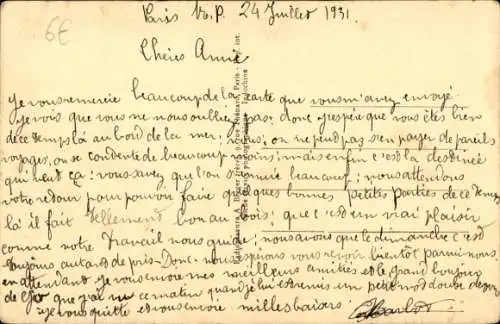 Paris V. P. 24 Juillet 1931.
6€
Chères Amie
Je vous remercie beaucoup de la carte que vous m'avez envoyé.
Je vois que vous ne nous oubliez pas, donc j'espère que vous êtes bien
de ce temps là au bord de la mer; nous; on ne peud pas s'en payer de pareils
voyages, on se condente de beaucoup moins; mais enfin c'est la destinée
qui veut ça: vous savez que l'on s'ennuie beaucoup; nous attendons
votre retour pour pouvoir faire quelques bonnes Petites Parties de ce temps
là il fait tellement bon au bois; que c'est un vrai plaisir
comme notre Travail nous guide; nous avons que le dimanche c'est
toujours autand de pris. Donc nous espérons vous revoir bientôt parmi nous.
en attendant je vous envoie mes meilleurs amitiés et le grand bonjour
de que j'ai vu ce matin quand je lui est remis un petit mot
je vous quitte et vous envoie milles baisers. Charlot